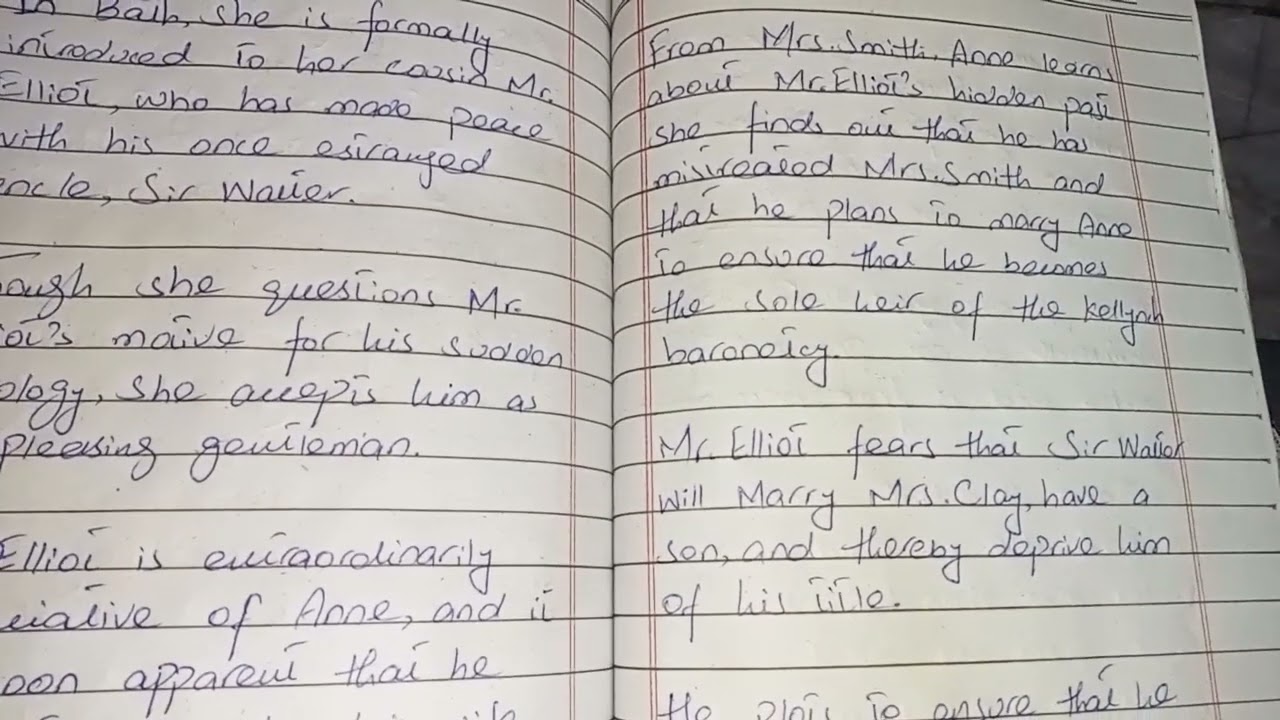 In Bath, she is formally
introduced to her cousin Mr.
Elliot, who has made peace
with his once estranged
uncle, Sir Walter.
ough she questions Mr.
ot's motive for his sudden
ology, she accepts him as
pleasing gentleman.
Elliot is extraordinarily
ciative of Anne, and it
oon apparent that he
From Mrs. Smith, Anne learns
about Mr. Elliot's hidden past
she finds out that he has
mistreated Mrs. Smith and
that he plans to marry Anne
to ensure that he becomes
the sole heir of the Kellynch
baronetcy.
Mr. Elliot fears that Sir Walter
will Marry Mrs. Clay, have a
son, and thereby deprive him
of his title.
He plots to ensure that he